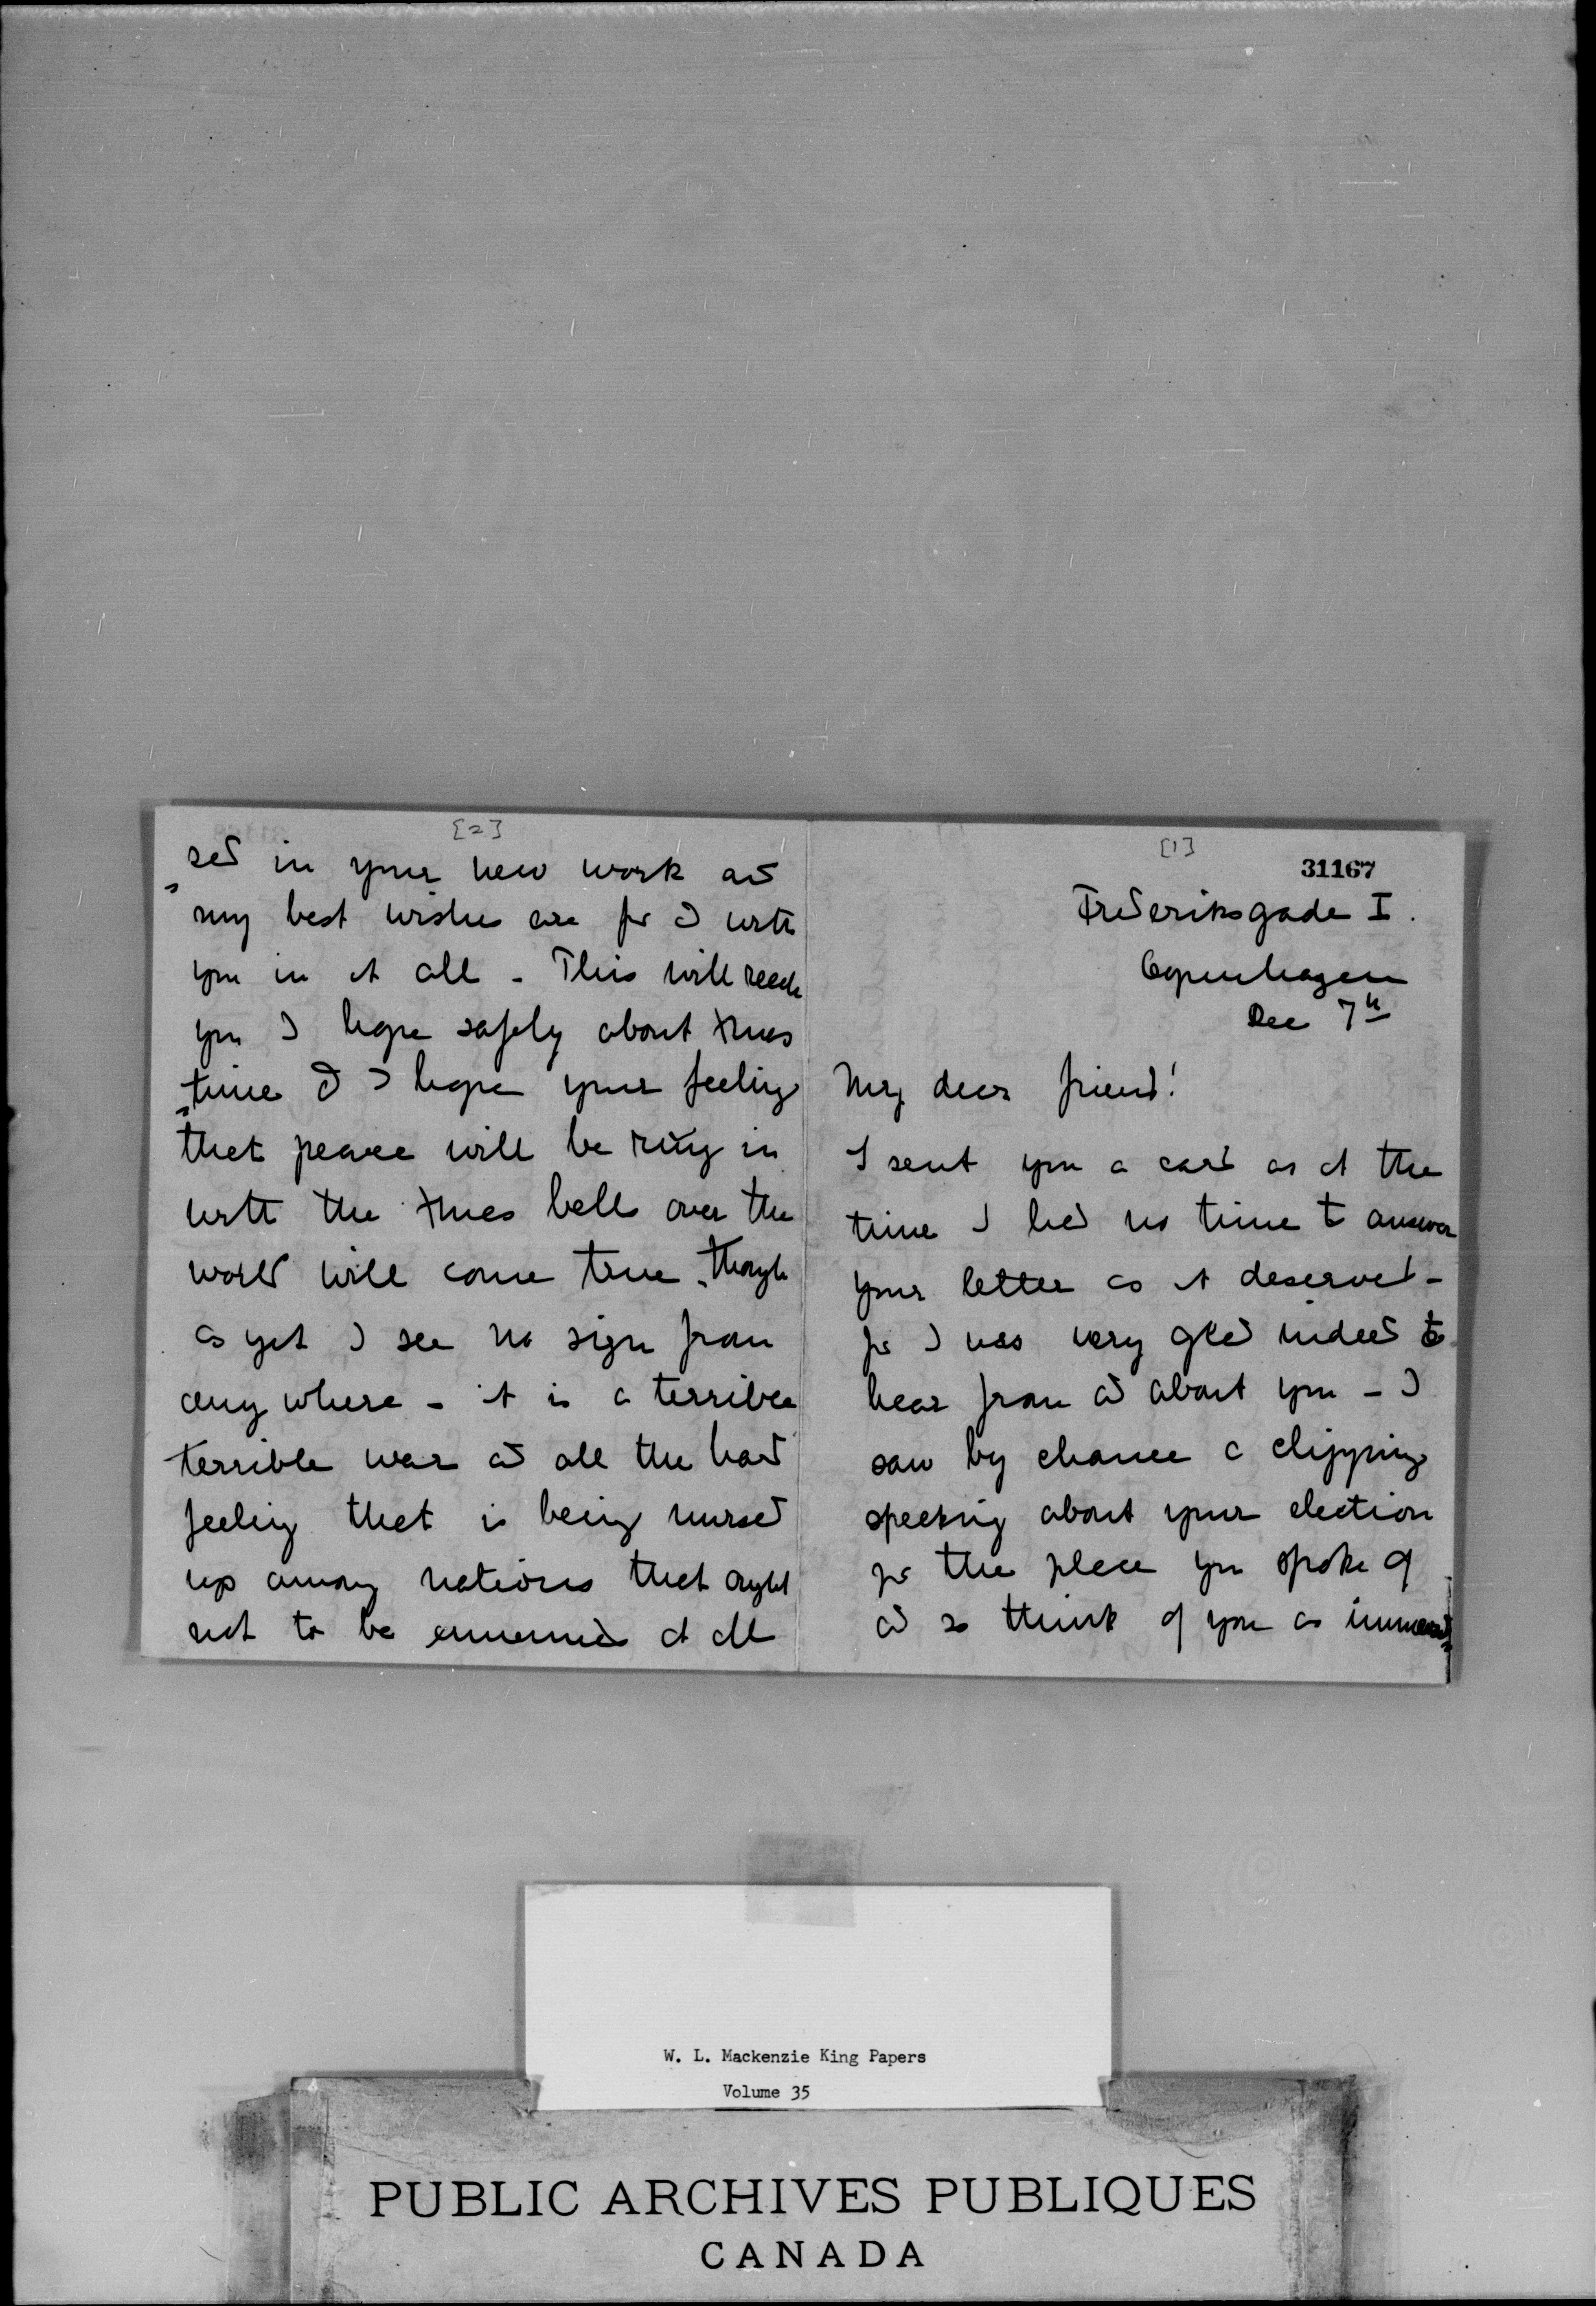 [1]
31167
Frederiksgade I.
Copenhagen
Dec 7th
My dear friend!
I sent you a card as at the
time I had no time to answer
your letter as it deserved -
for I was very glad indeed to
hear from and about you - I
saw by chance a clipping
speeking about your election
for the place you spoke of
and so think of you as immers=
[2]
=sed in your new work and
my best wishes are for & with
you in it all - This will reach
you I hope safely about Xmas
=time & I hope your feeling
that peace will be ring in
with the Xmas bells over the
world will come true, though
as yet I see no sign from
any where - it is a terrible
terrible war and all the hard
feeling that is being nursed
up among nations that ought
not to be ennemies at all
W. L. Mackenzie King Papers
Volume 35
PUBLIC ARCHIVES PUBLIQUES
CANADA